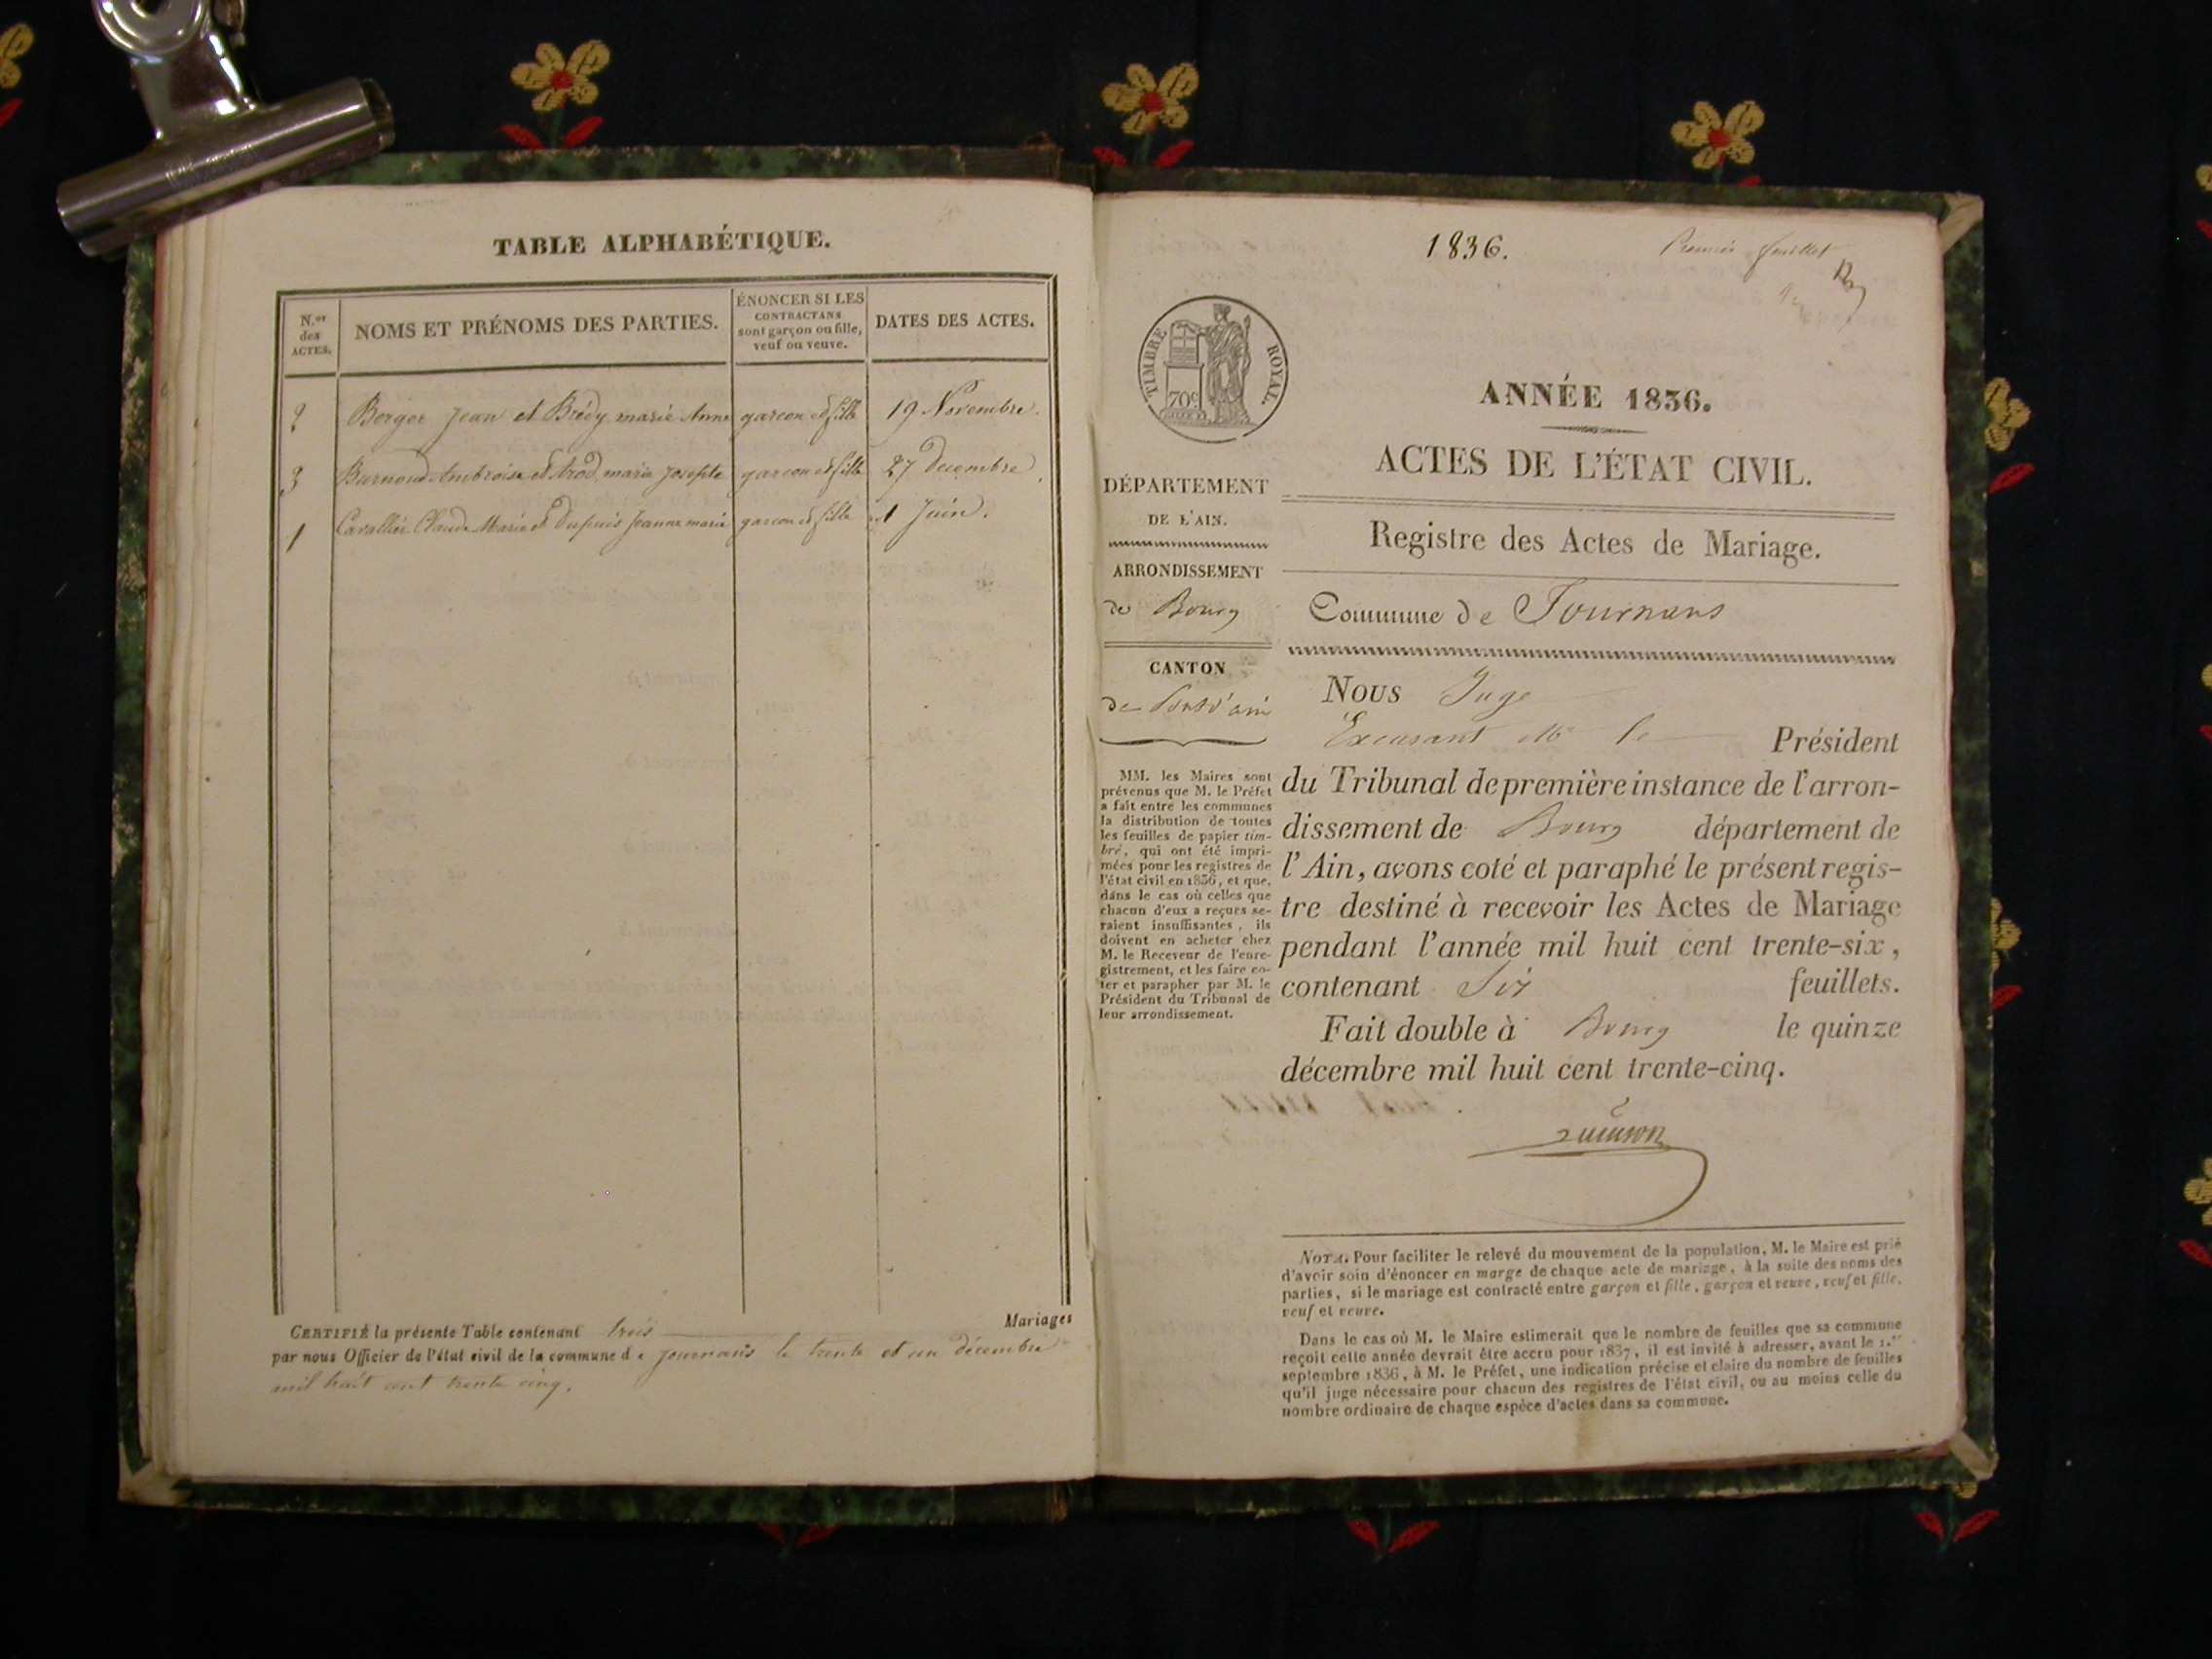 TABLE ALPHABÉTIQUE.
N.os des ACTES.
NOMS ET PRÉNOMS DES PARTIES.
ÉNONCER SI LES
CONTRACTANS
sont garçon ou fille,
veuf ou veuve.
DATES DES ACTES.
2 Berger Jean et Brédy marie Anne garcon et fille 19 Novembre.
3 Barnoud Ambroise et marie Josephte garcon et fille 27 decembre
1 Cavallier Claude Marie et Dupuis Jeanne marie garcon et fille 1 Juin.
CERTIFIÉ la présente Table contenant trois Mariages
par nous Officier de l'état civil de la commune de Journans le trente et un décembre
mil huit cent trente cinq.
1836.
Premier feuillet
TIMBRE ROYAL.
70c
ANNÉE 1836.
ACTES DE L'ÉTAT CIVIL.
Registre des Actes de Mariage.
Commune de Journans
DÉPARTEMENT
DE L'AIN.
ARRONDISSEMENT
de Bourg
CANTON
de Pont d'ain
MM. les Maires sont
prévenus que M. le Préfet
a fait entre les communes
la distribution de toutes
les feuilles de papier tim-
bré, qui ont été impri-
mées pour les registres de
l'état civil en 1836, et que,
dans le cas où celles que
chacun d'eux a reçues se-
raient insuffisantes, ils
doivent en acheter chez
M. le Receveur de l'enre-
gistrement, et les faire co-
ter et parapher par M. le
Président du Tribunal de
leur arrondissement.
Nous Juge
Excusant Mr le Président
du Tribunal de première instance de l'arron-
dissement de Bourg département de
l'Ain, avons coté et paraphé le présent regis-
tre destiné à recevoir les Actes de Mariage
pendant l'année mil huit cent trente-six,
contenant Six feuillets.
Fait double à Bourg le quinze
décembre mil huit cent trente-cinq.
NOTA. Pour faciliter le relevé du mouvement de la population, M. le Maire est prié
d'avoir soin d'énoncer en marge de chaque acte de mariage, à la suite des noms des
parties, si le mariage est contracté entre garçon et fille, garçon et veuve, veuf et fille,
veuf et veuve.
Dans le cas où M. le Maire estimerait que le nombre de feuilles que sa commune
reçoit cette année devrait être accru pour 1837, il est invité à adresser, avant le 1.er
septembre 1836, à M. le Préfet, une indication précise et claire du nombre de feuilles
qu'il juge nécessaire pour chacun des registres de l'état civil, ou au moins celle du
nombre ordinaire de chaque espèce d'actes dans sa commune.